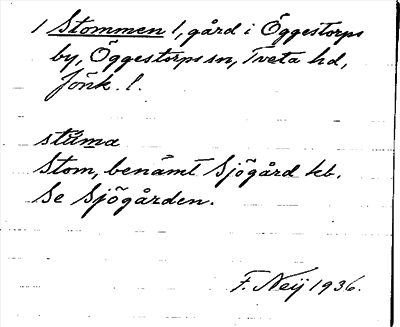 / Stommen /, gård i Öggestorps
by, Öggestorps sn, Tveta hd,
Jönk. l.
stůma
Stom, benämt Sjögård kb.
Se Sjögården.
F. Neij 1936.